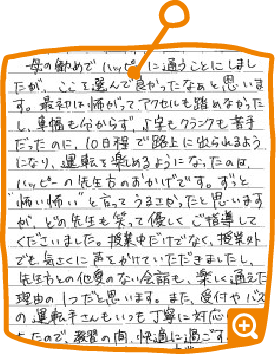 母の勧めでハッピーに通うことにしまし
たが、ここを選んで良かったなぁと思いま
す。最初は怖がってアクセルも踏めなかった
し、車幅も分からず、S字もクランクも苦手
だったのに、10日程で路上に出られるよう
になり、運転を楽しめるようになったのは、
ハッピーの先生方のおかげです。ずっと
"怖い怖い"と言ってうるさかったと思います
が、どの先生も笑って優しくご指導して
くださいました。授業中だけでなく、授業外
でも気さくに声をかけていただきましたし、
先生方との他愛のない会話も、楽しく通えた
理由の1つだと思います。また、受付やバス
の運転手さんもいつも丁寧に対応
たので、講習の間、快適に過ごす